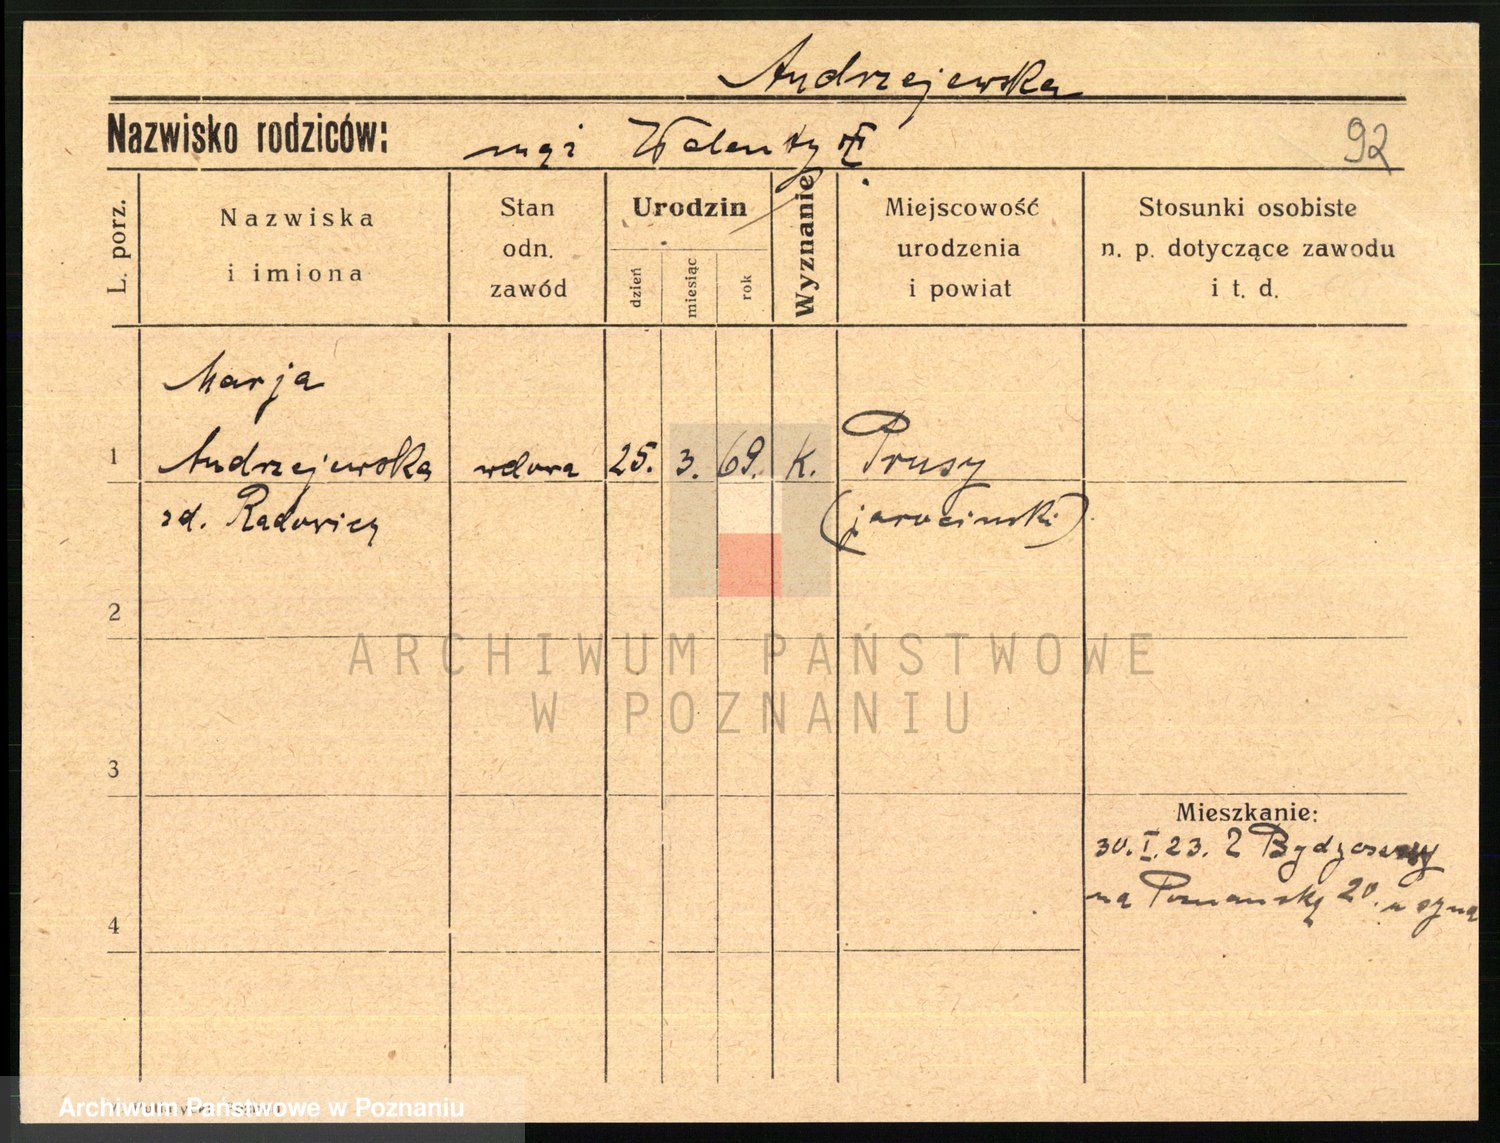 Andrzejewska
Nazwisko rodziców: mąż Walenty
92
L. porz.
Nazwiska
i imiona
Stan
odn.
zawód
Urodzin
dzień
miesiąc
rok
Wyznanie
Miejscowość
urodzenia
i powiat
Stosunki osobiste
n. p. dotyczące zawodu
i t. d.
Marja
1 Andrzejewska wdowa 25. 3. 69. K. Prusy
zd. Radowicz (jarociński)
2
ARCHIWUM PAŃSTWOWE
W POZNANIU
3
Mieszkanie:
30. I. 23. Z Bydgoszczy
na Poznańską 20. u syna
4
Archiwum Państwowe w Poznaniu